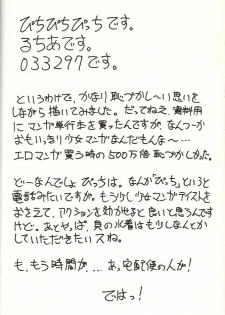 ぴちぴちぴっちです。
るちあです。
033297です。
というわけで、かなり恥づかし〜い思いを
しながら描いてみました。だってねえ、資料用
にマンガ単行本を買ったんですが、なんつーか
おもいっきり少女マンガなんだもんな〜…
エロマンガ買う時の500万倍恥づかしかった。
どーなんでしょ ぴっちは。なんか「ぴっち」というと
電話みたいですが。もう少し少女マンガテイストを
おさえて、アクションを効かせると良いと思うんです
けど。あとやっぱ、貝の水着はも少しなんとか
していただきたいスね。
も、もう時間が、… あっ宅配便の人が!
ではっ!